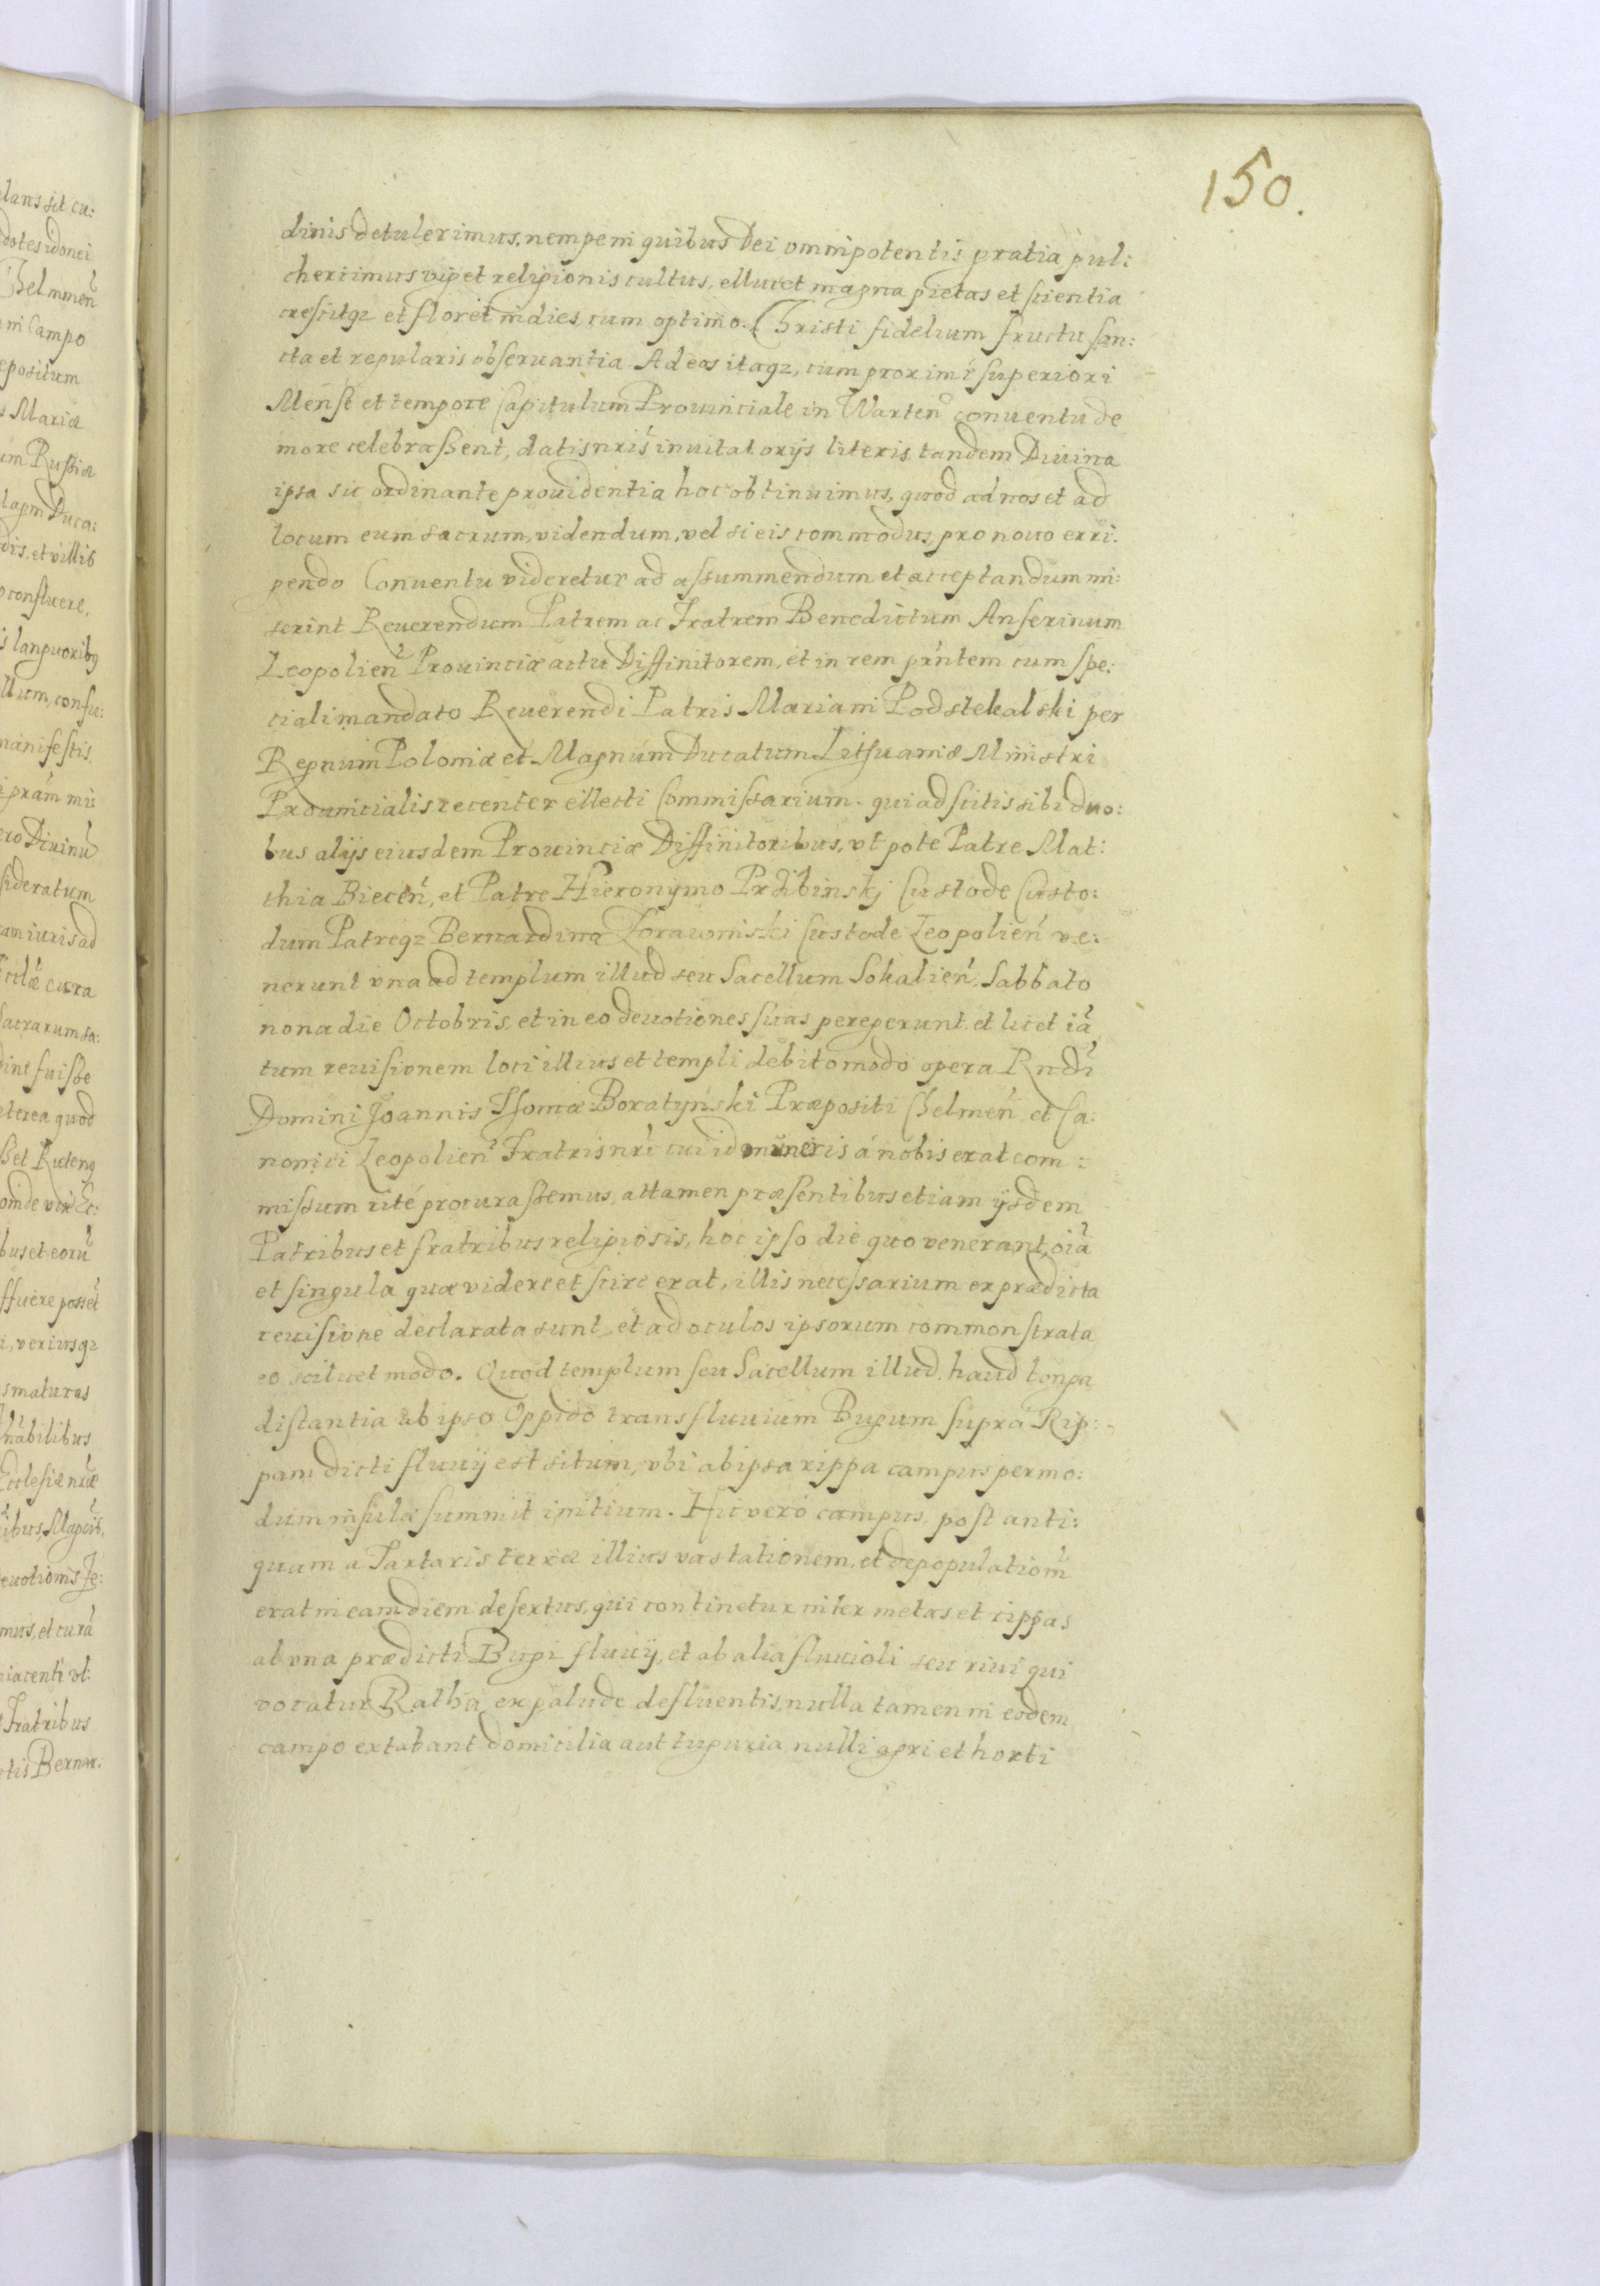 150.
dinis detulerimus, nempe in quibus Dei omnipotentis gratia pul:
cherrimus viget religionis cultus, ellucet magna pietas et scientia
crescitqz et floret in dies, cum optimo Christi fidelium fructu san:
cta et regularis obseruantia. Ad eos itaqz, cum proximé superiori
Mense et tempore Capitulum Prouinciale in Warten̄ conuentu de
more celebrassent, datis nrīs inuitatorijs literis, tandem Diuina
ipsa sic ordinante prouidentia hoc obtinuimus, quod ad nos et ad
locum eum sacrum, videndum, vel si eis commodus, pro nouo erri:
gendo Conuentu videretur ad assummendum et acceptandum mi:
serint Reuerendum Patrem ac Fratrem Benedictum Anserinum
Leopolien̄ Prouinciæ actu Diffinitorem, et in rem prn̄tem cum spe:
ciali mandato Reuerendi Patris Mariani Podstekalski per
Regnum Poloniæ et Magnum Ducatum Lithuaniæ Ministri
Prouincialis recenter ellecti Commissarium. qui adscitis sibi duo:
bus alijs eiusdem Prouinciæ Diffinitoribus, vt pote Patre Mat:
thia Biecen̄, et Patre Hieronymo Przibinskj Custode Custo:
dum Patreqz Bernardino Zorawinski Custode Leopolien̄ ve:
nerunt vna ad templum illud seu Sacellum Sokalien̄, Sabbato
nona die Octobris, et in eo deuotiones suas peregerunt, et licet iā
tum reuisionem loci illius et templi debito modo opera Rn̄di
Domini Joannis Thomæ Boratyński Præpositi Chelmen̄ et Ca:
nonici Leopolien̄ Fratris nrī cui id muneris á nobis erat com:
missum rité procurassemus, attamen præsentibus etiam ijsdem
Patribus et fratribus religiosis, hoc ipso die quo venerant, oīa
et singula quæ videre et scire erat, illis necessarium ex prædicta
reuisione declarata sunt, et ad oculos ipsorum commonstrata
eo scilicet modo. Quod templum seu Sacellum illud, haud longa
distantia ab ipso Oppido trans fluuium Bugum supra Rip:
pam dicti fluuij est situm, vbi ab ipsa rippa campus per mo:
dum insulæ summit initium. Hic veró campus, post anti:
quam a Tartaris terræ illius vastationem, et depopulationē
erat in eam diem desertus, qui continetur inter metas et rippas
ab vna prædicti Bugi fluuij, et ab alia fluuioli seu riui qui
vocatur Ratha, ex palude defluentis, nulla tamen in eodem
campo extabant domicilia aut tuguria nulli agri et horti